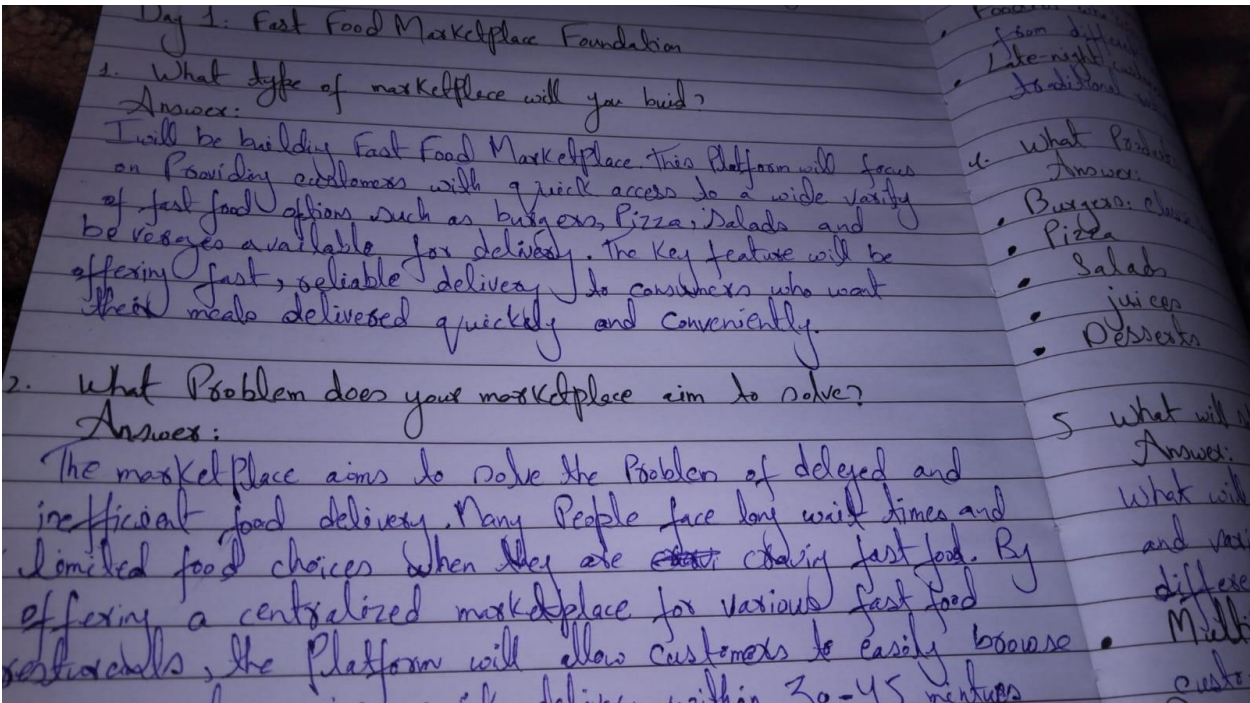 Day 1: Fast Food Marketplace Foundation
1. What type of marketplace will you buid?
Answer:
I will be building Fast Food Marketplace. This Platform will focus
on Providing customers with quick access to a wide varity
of fast food options such as burgers, Pizza, Salads and
beverages available for delivery. The Key feature will be
offering fast, reliable delivery to consumers who want
their meals delivered quickely and Conveniently.
2. What Problem does your marketplace aim to solve?
Answer:
The marketPlace aims to solve the Problem of deleyed and
inefficient food delivery. Many People face long wait times and
limited food choices when they are craving fast food. By
offering a centralized marketplace for various fast food
the Platform will allow Customers to easily browse
within 30-45
from
Late-night
traditional
4. What
Answer:
• Burgers:
• Pizza
• Salads
• juices
• Desserts
5 What will
Answer:
What will
and